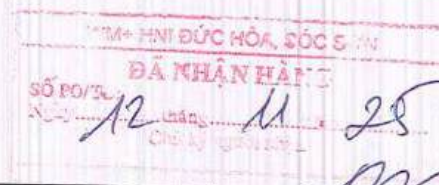 WM+ HNI ĐỨC HÒA, SÓC SƠN
ĐÃ NHẬN HÀNG
SỐ PO/
Ngày 12 tháng 11 . 25
Chữ ký người